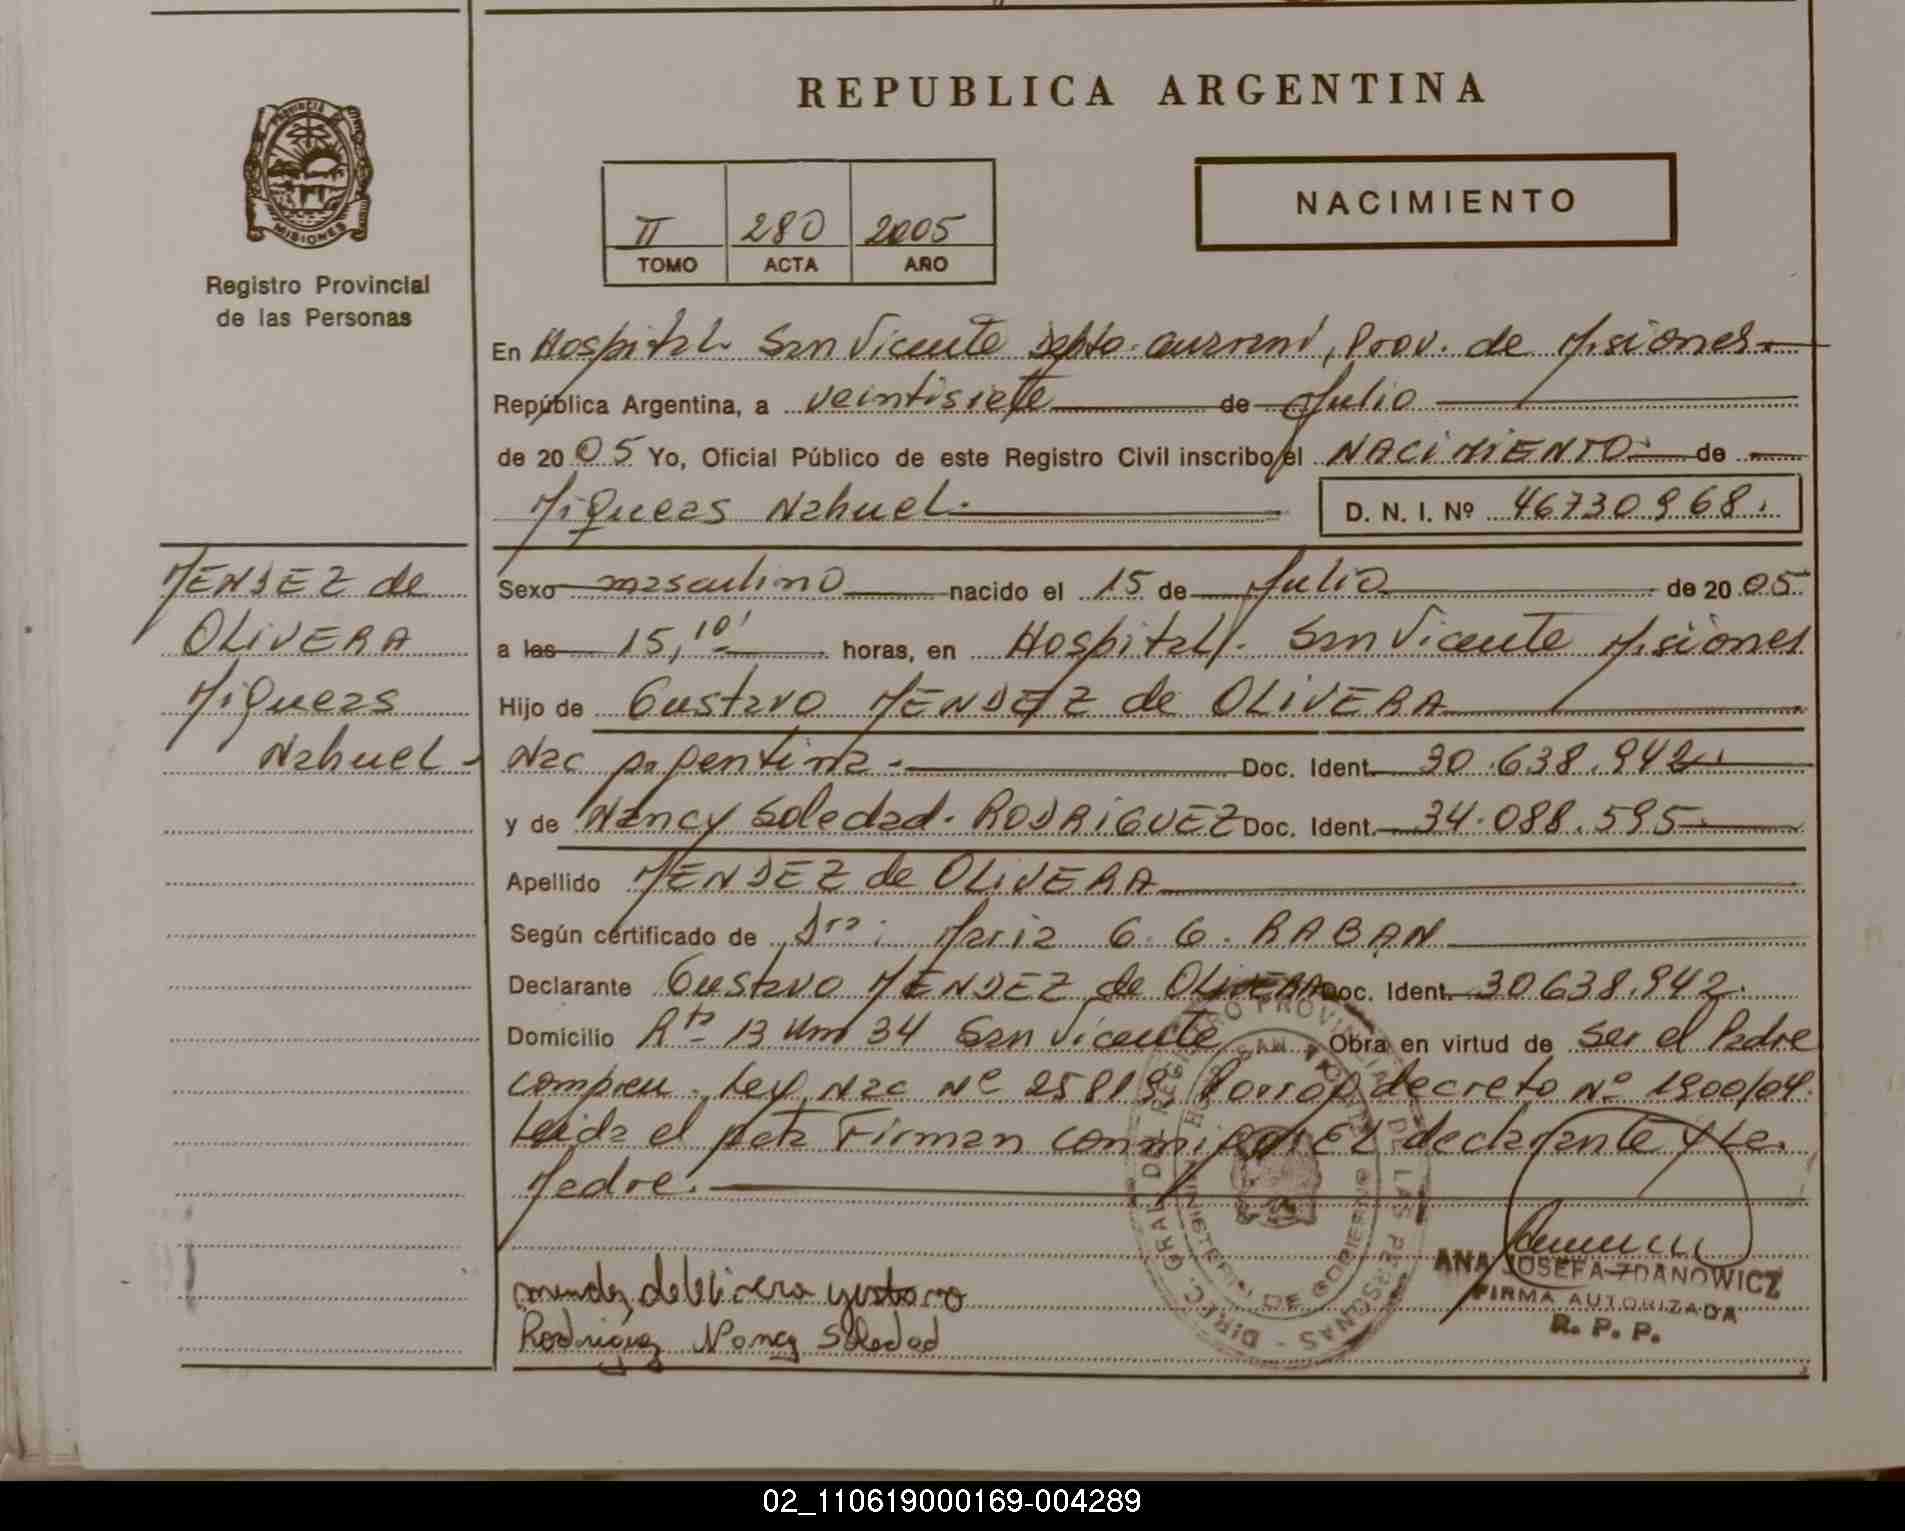 REPUBLICA ARGENTINA
PROVINCIA DE
MISIONES
Registro Provincial
de las Personas
II 280 2005
TOMO ACTA AÑO
NACIMIENTO
En Hospital San Vicente Depto. Guarani, Prov. de Misiones
República Argentina, a veintisiete de Julio
de 2005 Yo, Oficial Público de este Registro Civil inscribo el NACIMIENTO de
Miqueas Nahuel.
D. N. I. Nº 46730968.
MENDEZ de
OLIVERA
Miqueas
Nahuel
Sexo masculino nacido el 15 de Julio de 2005
a las 15,10' horas, en Hospital. San Vicente Misiones
Hijo de Gustavo MENDEZ de OLIVERA
Nac Argentina. Doc. Ident. 30.638.942
y de Nancy Soledad. RODRIGUEZ Doc. Ident. 34.088.595
Apellido MENDEZ de OLIVERA
Según certificado de Dra: Maria G. G. RABAN
Declarante Gustavo MENDEZ de OLIVERA Doc. Ident. 30638.942.
Domicilio Rta 13 Km 34 San Vicente Obra en virtud de Ser el Padre
Ley Nac Nº 25819, Prorrog decreto Nº 1900/04.
Leida el Acta Firman conmigo El declarante y La
Madre.
DIREC. GRAL. DEL REGISTRO PROVINCIAL DE LAS PERSONAS
MINISTERIO DE GOBIERNO
SAN VICENTE
mendez de olivera gustavo
Rodriguez Nancy Soledad
ANA JOSEFA ZDANOWICZ
FIRMA AUTORIZADA
R. P. P.
02_110619000169-004289